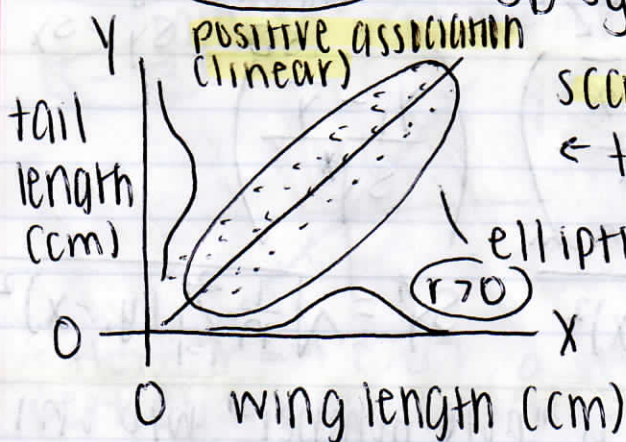 Y positive association
(linear)
tail
length
(cm)
←
r>0
X
0
0 wing length (cm)